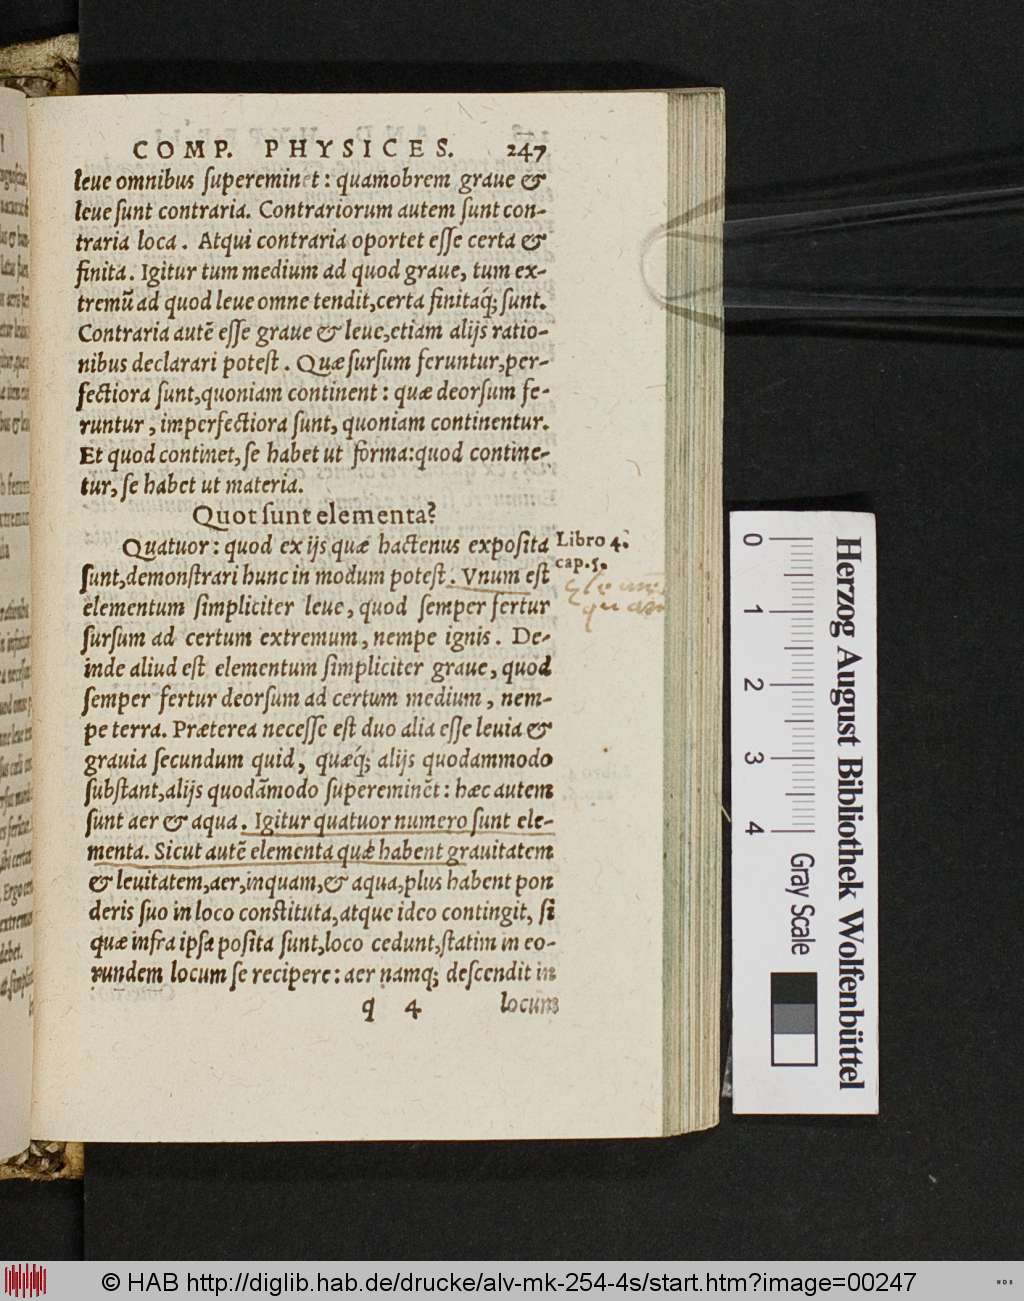 COMP. PHYSICES. 247
leue omnibus ſupereminet : quamobrem graue &
leue ſunt contraria. Contrariorum autem ſunt con-
traria loca . Atqui contraria oportet eſſe certa &
finita . Igitur tum medium ad quod graue, tum ex-
tremũ ad quod leue omne tendit,certa finitaq́; ſunt.
Contraria autẽ eſſe graue & leue,etiam alijs ratio-
nibus declarari poteſt . Quæ ſurſum feruntur,per-
fectiora ſunt,quoniam continent : quæ deorſum fe-
runtur , imperfectiora ſunt, quoniam continentur.
Et quod continet,ſe habet ut forma:quod contine-
tur, ſe habet ut materia.
Quot ſunt elementa?
Quatuor : quod ex ijs quæ hactenus expoſita
Libro 4.
cap.5.
ſunt,demonſtrari hunc in modum poteſt . Vnum eſt
elementum ſimpliciter leue, quod ſemper fertur
ſurſum ad certum extremum, nempe ignis . De-
inde aliud eſt elementum ſimpliciter graue, quod
ſemper fertur deorſum ad certum medium , nem-
pe terra. Præterea neceſſe eſt duo alia eſſe leuia &
grauia ſecundum quid, quæq́; alijs quodammodo
ſubſtant,alijs quodãmodo ſupereminẽt : hæc autem
ſunt aer & aqua . Igitur quatuor numero ſunt ele-
menta. Sicut autẽ elementa quæ habent grauitatem
& leuitatem,aer,inquam,& aqua,plus habent pon
deris ſuo in loco conſtituta,atque ideo contingit, ſi
quæ infra ipſa poſita ſunt,loco cedunt,ſtatim in eo-
rundem locum ſe recipere : aer namq; deſcendit in
q 4 locum
0 1 2 3 4
Gray Scale
Herzog August Bibliothek Wolfenbüttel
© HAB http://diglib.hab.de/drucke/alv-mk-254-4s/start.htm?image=00247